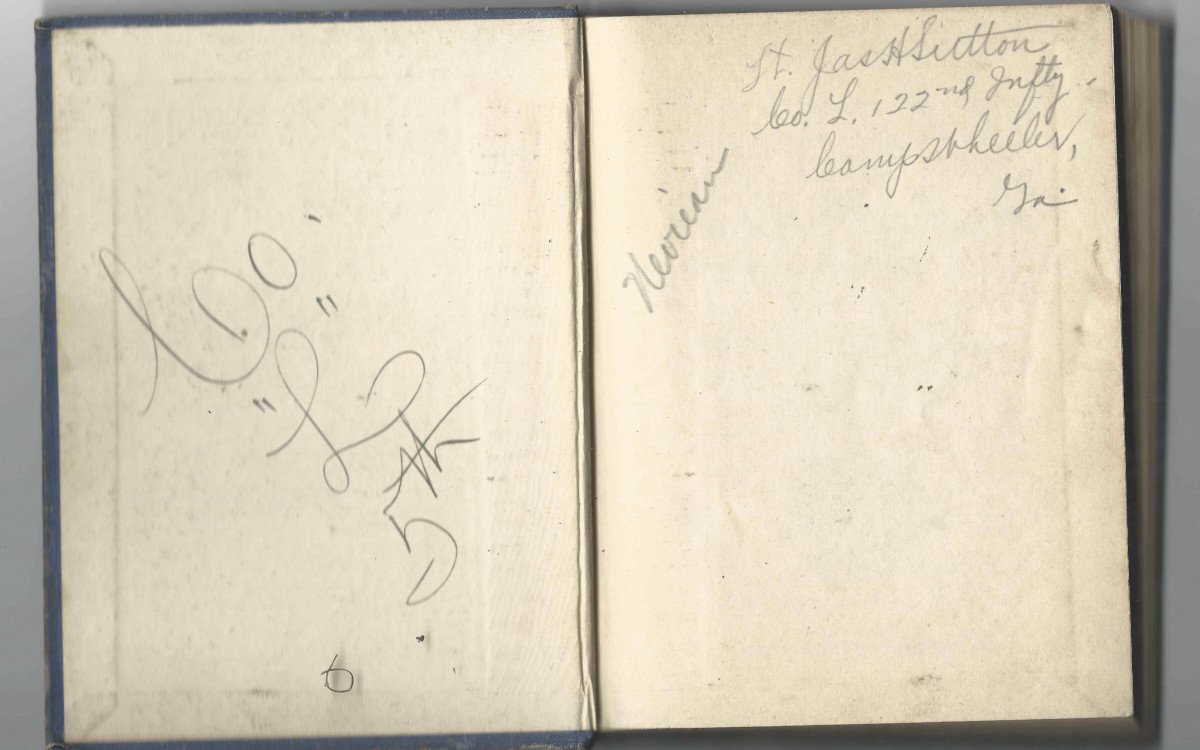 Co.
"L"
5th
6
Lt. Jas H Sutton
Co. L. 122nd Infty.
Camp Wheeler,
Ga.